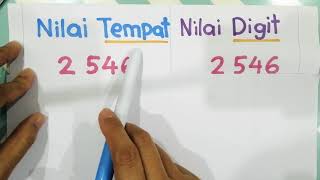 Nilai Tempat Nilai Digit
2 546 2 546